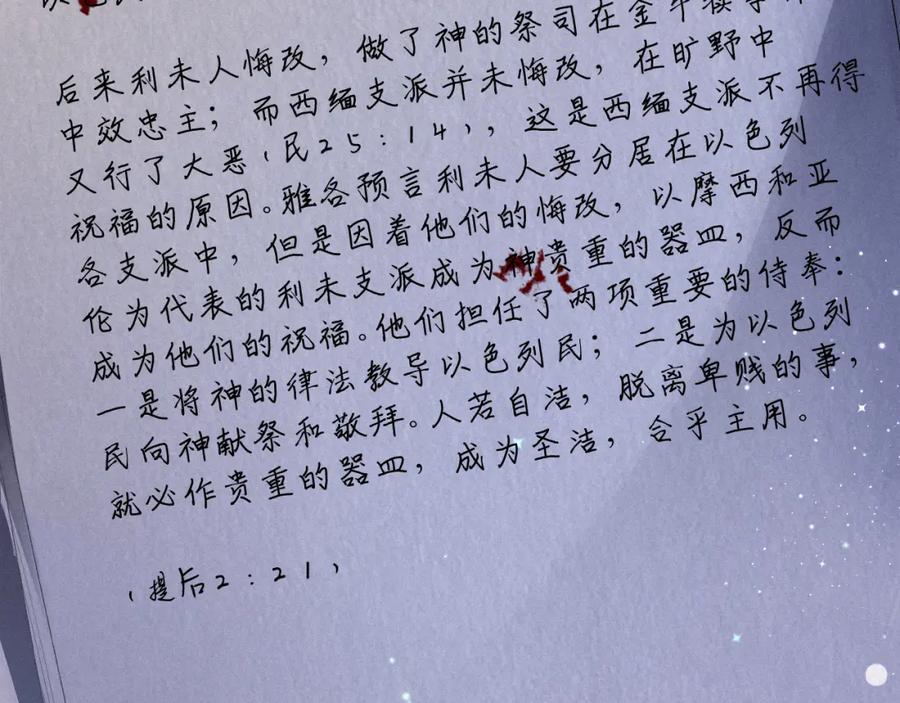 后来利未人悔改，做了神的祭司在金牛犊事
中效忠主；而西缅支派并未悔改，在旷野中
又行了大恶（民25：14），这是西缅支派不再得
祝福的原因。雅各预言利未人要分居在以色列
各支派中，但是因着他们的悔改，以摩西和亚
伦为代表的利未支派成为神贵重的器皿，反而
成为他们的祝福。他们担任了两项重要的侍奉：
一是将神的律法教导以色列民；二是为以色列
民向神献祭和敬拜。人若自洁，脱离卑贱的事，
就必作贵重的器皿，成为圣洁，合乎主用。
（提后2：21）